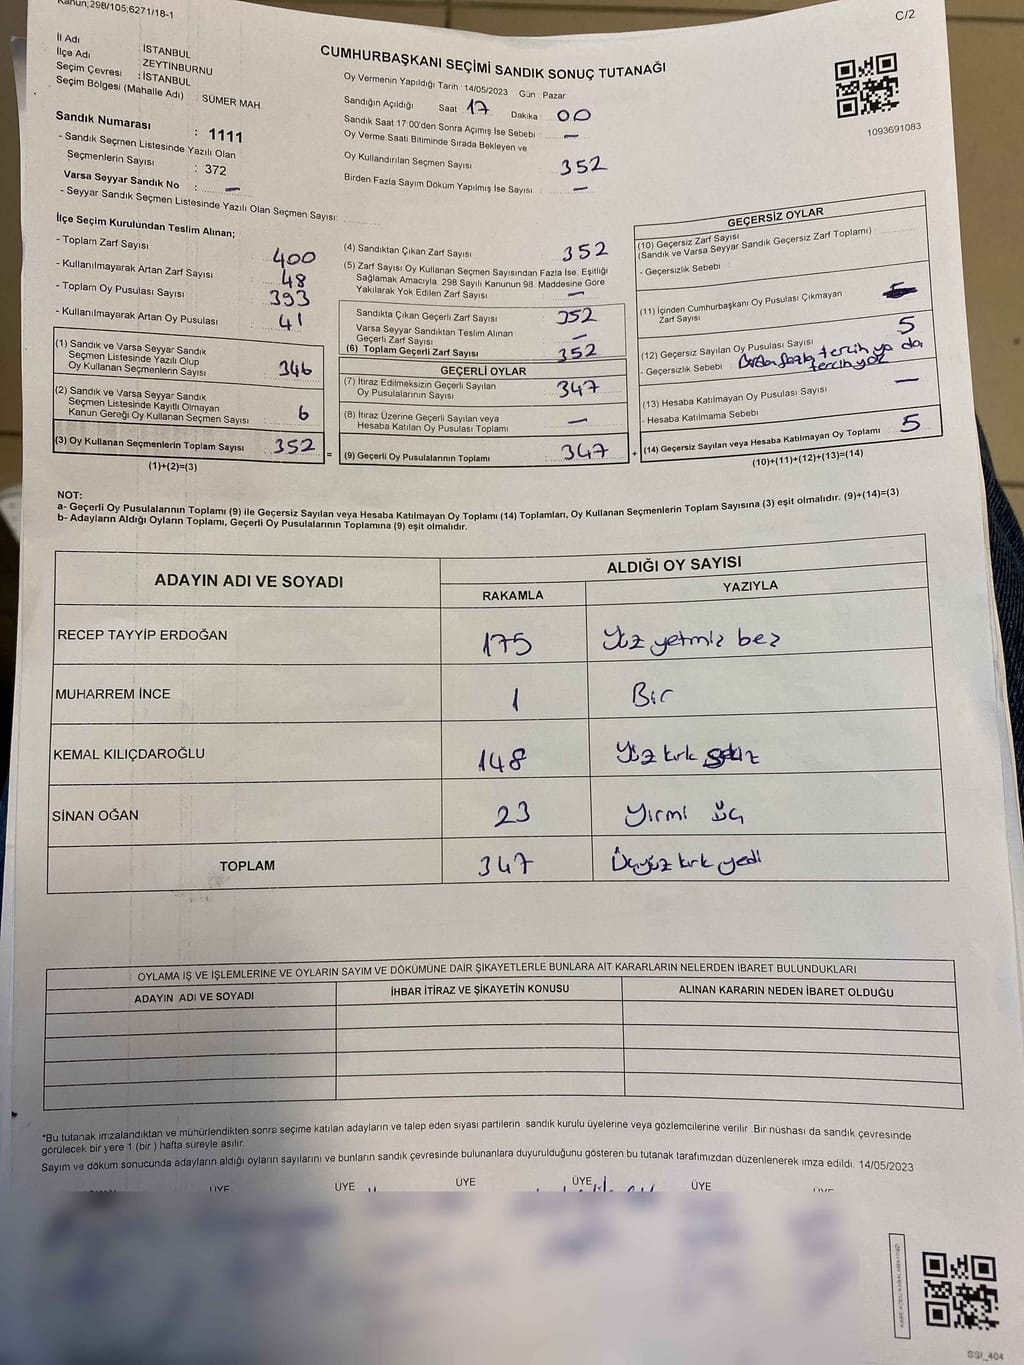 Kanun;298/105;6271/18-1
C/2
CUMHURBAŞKANI SEÇİMİ SANDIK SONUÇ TUTANAĞI
İl Adı : İSTANBUL
İlçe Adı : ZEYTİNBURNU
Seçim Çevresi : İSTANBUL
Seçim Bölgesi (Mahalle Adı) SÜMER MAH.
Sandık Numarası : 1111
- Sandık Seçmen Listesinde Yazılı Olan
Seçmenlerin Sayısı : 372
Varsa Seyyar Sandık No : —
- Seyyar Sandık Seçmen Listesinde Yazılı Olan Seçmen Sayısı:
Oy Vermenin Yapıldığı Tarih : 14/05/2023 Gün : Pazar
Sandığın Açıldığı Saat 17 Dakika : 00
Sandık Saat 17:00'den Sonra Açımış İse Sebebi —
Oy Verme Saati Bitiminde Sırada Bekleyen ve
Oy Kullandırılan Seçmen Sayısı 352
Birden Fazla Sayım Döküm Yapılmış İse Sayısı : —
1093691083
İlçe Seçim Kurulundan Teslim Alınan;
- Toplam Zarf Sayısı 400
- Kullanılmayarak Artan Zarf Sayısı 48
- Toplam Oy Pusulası Sayısı 393
- Kullanılmayarak Artan Oy Pusulası 41
(1) Sandık ve Varsa Seyyar Sandık
Seçmen Listesinde Yazılı Olup
Oy Kullanan Seçmenlerin Sayısı 346
(2) Sandık ve Varsa Seyyar Sandık
Seçmen Listesinde Kayıtlı Olmayan
Kanun Gereği Oy Kullanan Seçmen Sayısı 6
(3) Oy Kullanan Seçmenlerin Toplam Sayısı 352
(1)+(2)=(3)
(4) Sandıktan Çıkan Zarf Sayısı 352
(5) Zarf Sayısı Oy Kullanan Seçmen Sayısından Fazla İse, Eşitliği
Sağlamak Amacıyla, 298 Sayılı Kanunun 98. Maddesine Göre
Yakılarak Yok Edilen Zarf Sayısı —
Sandıkta Çıkan Geçerli Zarf Sayısı 352
Varsa Seyyar Sandıktan Teslim Alınan
Geçerli Zarf Sayısı —
(6) Toplam Geçerli Zarf Sayısı 352
GEÇERLİ OYLAR
(7) İtiraz Edilmeksizin Geçerli Sayılan
Oy Pusulalarının Sayısı 347
(8) İtiraz Üzerine Geçerli Sayılan veya
Hesaba Katılan Oy Pusulası Toplamı —
(9) Geçerli Oy Pusulalarının Toplamı 347
=
+
GEÇERSİZ OYLAR
(10) Geçersiz Zarf Sayısı
(Sandık ve Varsa Seyyar Sandık Geçersiz Zarf Toplamı)
- Geçersizlik Sebebi
(11) İçinden Cumhurbaşkanı Oy Pusulası Çıkmayan
Zarf Sayısı
(12) Geçersiz Sayılan Oy Pusulası Sayısı 5
- Geçersizlik Sebebi Birden fazla tercih ya da
tercih yok
(13) Hesaba Katılmayan Oy Pusulası Sayısı —
- Hesaba Katılmama Sebebi
(14) Geçersiz Sayılan veya Hesaba Katılmayan Oy Toplamı 5
(10)+(11)+(12)+(13)=(14)
NOT:
a- Geçerli Oy Pusulalarının Toplamı (9) ile Geçersiz Sayılan veya Hesaba Katılmayan Oy Toplamı (14) Toplamları, Oy Kullanan Seçmenlerin Toplam Sayısına (3) eşit olmalıdır. (9)+(14)=(3)
b- Adayların Aldığı Oyların Toplamı, Geçerli Oy Pusulalarının Toplamına (9) eşit olmalıdır.
ADAYIN ADI VE SOYADI
ALDIĞI OY SAYISI
RAKAMLA YAZIYLA
RECEP TAYYİP ERDOĞAN 175 Yüz yetmiş beş
MUHARREM İNCE 1 Bir
KEMAL KILIÇDAROĞLU 148 Yüz kırk sekiz
SİNAN OĞAN 23 Yirmi üç
TOPLAM 347 Üçyüz kırk yedi
OYLAMA İŞ VE İŞLEMLERİNE VE OYLARIN SAYIM VE DÖKÜMÜNE DAİR ŞİKAYETLERLE BUNLARA AİT KARARLARIN NELERDEN İBARET BULUNDUKLARI
ADAYIN ADI VE SOYADI İHBAR İTİRAZ VE ŞİKAYETİN KONUSU ALINAN KARARIN NEDEN İBARET OLDUĞU
*Bu tutanak imzalandıktan ve mühürlendikten sonra seçime katılan adayların ve talep eden siyasi partilerin sandık kurulu üyelerine veya gözlemcilerine verilir. Bir nüshası da sandık çevresinde
görülecek bir yere 1 (bir ) hafta süreyle asılır.
Sayım ve döküm sonucunda adayların aldığı oyların sayılarını ve bunların sandık çevresinde bulunanlara duyurulduğunu gösteren bu tutanak tarafımızdan düzenlenerek imza edildi. 14/05/2023
ÜYE ÜYE ÜYE ÜYE ÜYE ÜYE
SSI_404